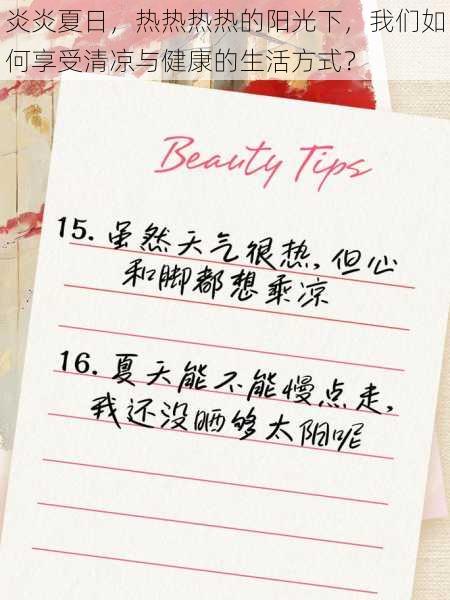 炎炎夏日，热热热热的阳光下，我们如
何享受清凉与健康的生活方式？
Beauty Tips
15. 虽然天气很热,但心
和脚都想乘凉
16. 夏天能不能慢点走,
我还没晒够太阳呢